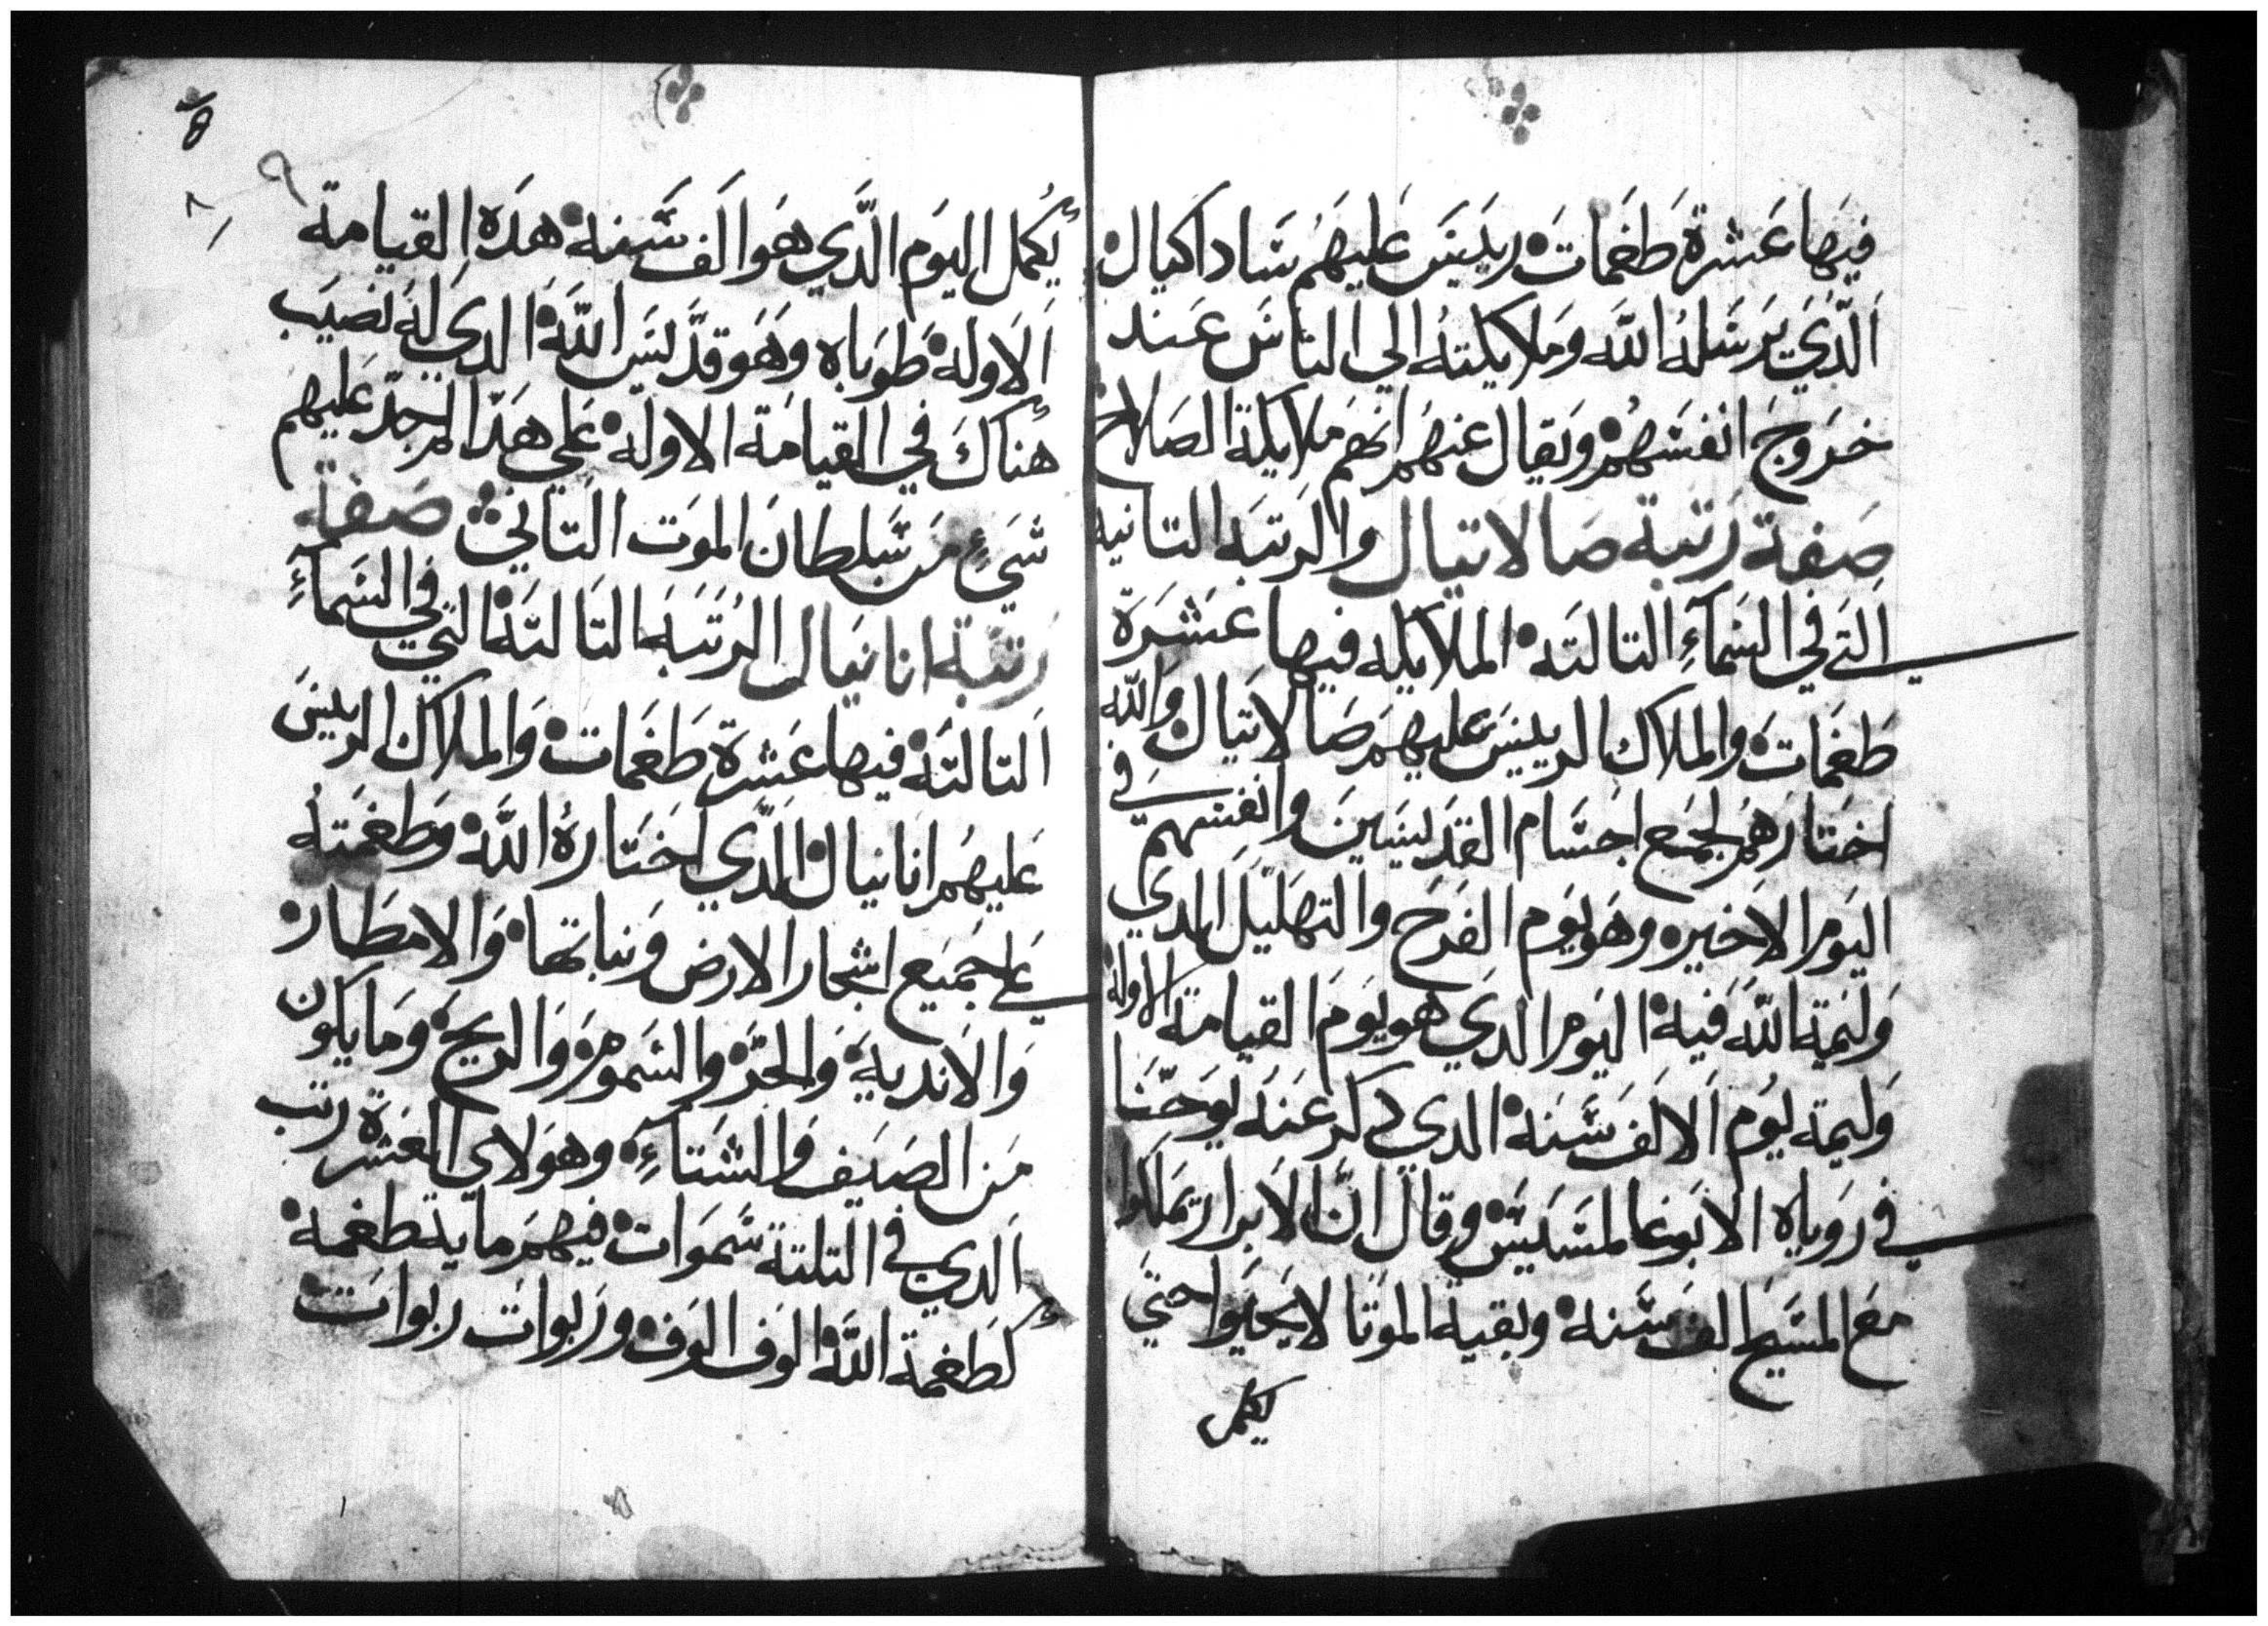 فيها عشرة طغمات رييس عليهم ساداكيال
الذي يرسله الله وملايكته الي الناس عند
خروج انفسهم ويقال عنهم انهم ملايكة الصلاح
صفة رتبة صالاتيال والرتبه التانيه
التي في السمآء التالته الملايكه فيها عشرة
طغمات والملاك الرييس عليهم صالاتيال والله
اختارهم لجمع اجسام القديسين وانفسهم في
اليوم الاخير وهو يوم الفرح والتهليل الدي
وليمة الله فيه اليوم الدي هو يوم القيامة الاوله
وليمة يوم الالف سنه الدي دكر عنه يوحنا
في روياه الابوغالمسيس وقال ان الابرار يملكوا
مع المسيح الف سنه وبقية الموتا لا يحيوا حتي
يكمل
8
يكمل اليوم الدي هو الف سنه هده القيامة
الاوله طوباه وهو قديس الله الدي له نصيب
هناك في القيامة الاوله علي هدا عليهم
شيء من سلطان الموت التاني صفة
رتبة انانيال الرتبه التالته التي في السمآء
التالته فيها عشرة طغمات والملاك الرييس
عليهم انانيال الدي اختاره الله وطغمته
علي جميع اشجار الارض ونباتها والامطار
والاندية والحر والسموم والريح وما يكون
من الصيف والشتآء وهولاي العشرة رتب
الدي في التلتة سموات فيهم ماية طغمة
كطغمة الله الوف الوف وربوات ربوات